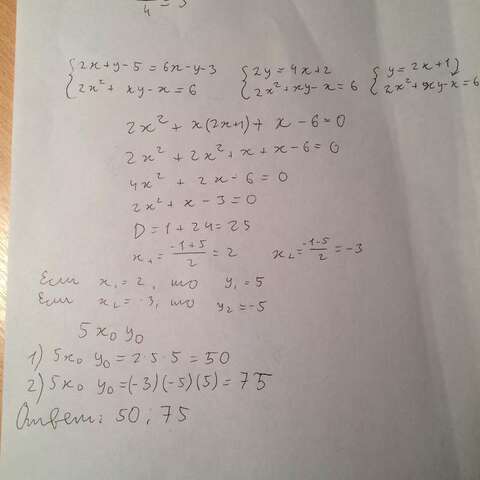 4 = 3
{2x+y-5 = 6x-y-3 {2y = 4x+2 {y = 2x+1}
{2x² + xy-x = 6 {2x²+xy-x = 6 {2x²+xy-x=6
2x² + x(2x+1) + x -6=0
2x² + 2x² + x + x -6=0
4x² + 2x - 6 = 0
2x² + x - 3 = 0
D = 1 + 24 = 25
x₁ = -1+5/2 = 2 x₂ = -1-5/2 = -3
Если x₁ = 2, то y₁ = 5
Если x₂ = -3, то y₂ = -5
5 x₀ y₀
1) 5x₀ y₀ = 2·5·5 = 50
2) 5x₀ y₀ = (-3)(-5)(5) = 75
Ответ: 50; 75